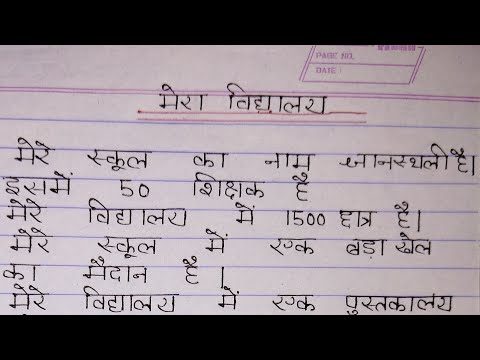 PAGE NO.
DATE :
मेरा विद्यालय
मेरे स्कूल का नाम ज्ञानस्थली है।
इसमें 50 शिक्षक है
मेरे विद्यालय में 1500 छात्र है।
मेरे स्कूल में एक बड़ा खेल
का मैदान है ।
मेरे विद्यालय में एक पुस्तकालय